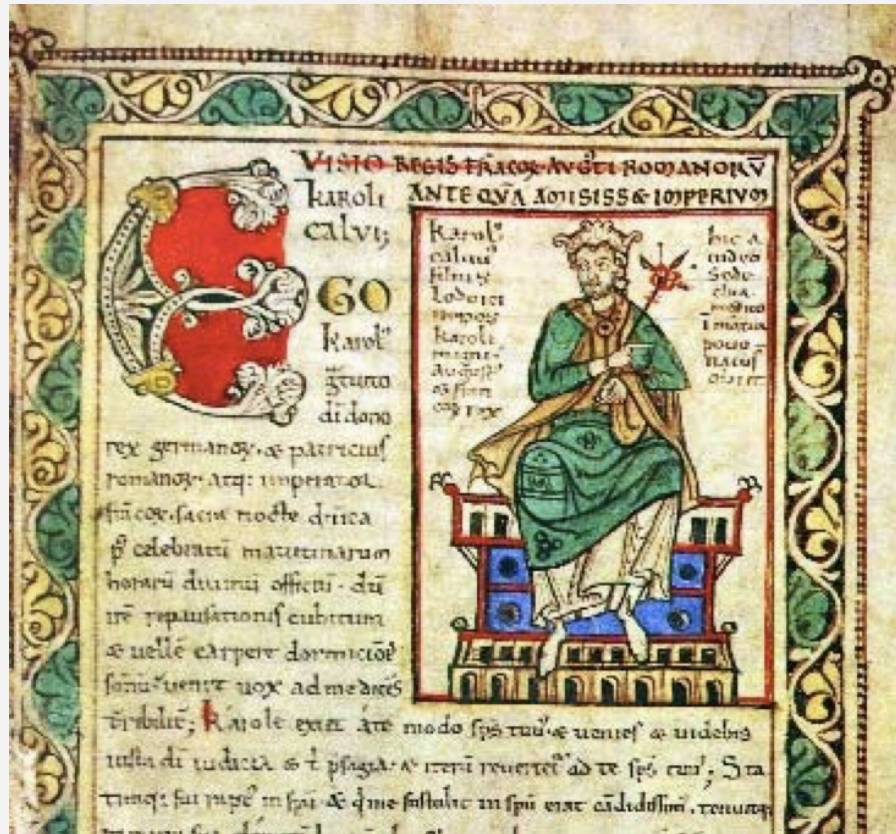 VISIO REGIS FRACOR AVGTI ROMANORV
KAROLI
CALVI;
ANTE QVA AMISISS& IMPERIVM
EGO
karol
gtuito
di dono
rex germanor & patricius
romanor atq; imperator
francor sacra nocte dnica
p celebratu matutinarum
horaru diuinu officiu du
ire repausationis cubitum
& uelle carpere dormicioe
somu uenit uox ad me dices
tribilit; Karole exiet a te modo sps tuus & uenies & uidebis
iusta di iudicia & psagia & iteru reuertet ad te sps tuus; Sta
timq; fui rapt in spu & q me sustulit in spu erat cadidissim tenuitq;
karol
caluus
filius
Lodoici
nepos
karoli
magni
rex
hic a
iudeo
Sede
chia
medico
ueneni
pocio
natus
obiit